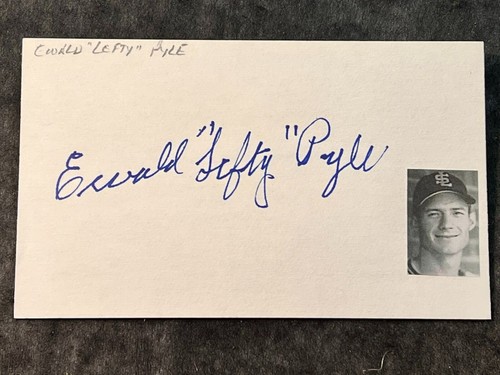 EWALD "LEFTY" PYLE
Ewald "Lefty" Pyle
STL